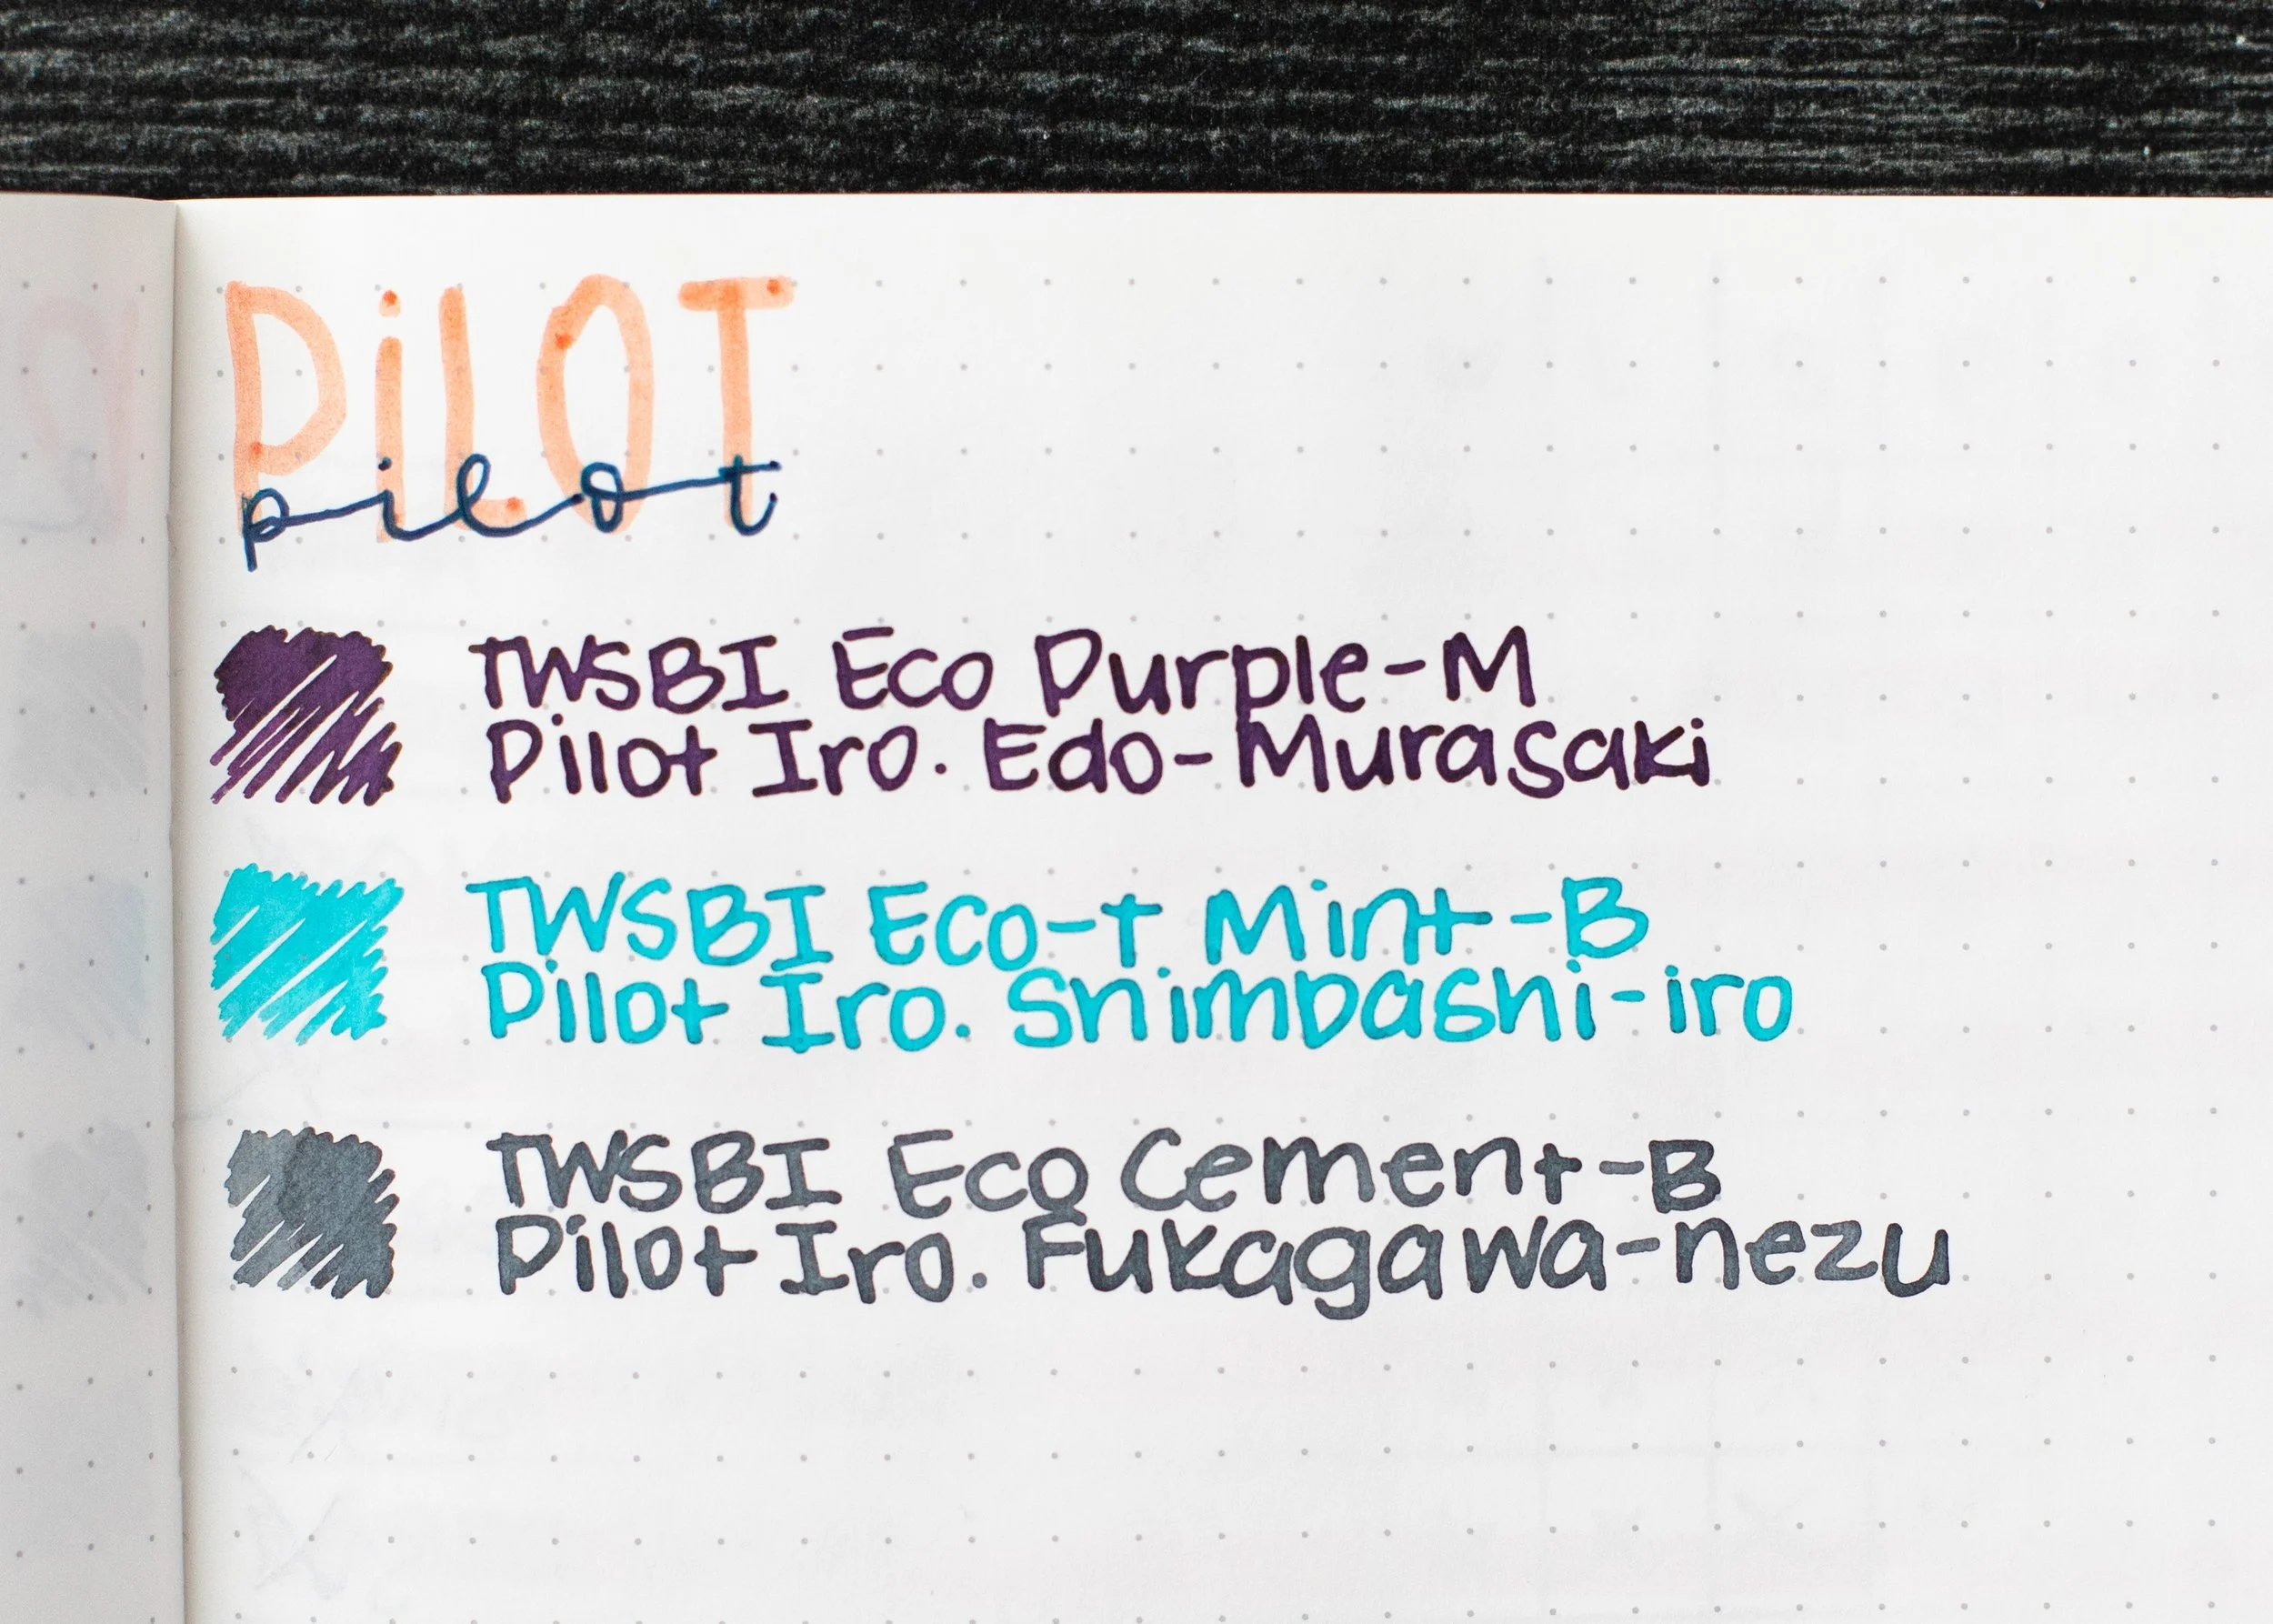 PiLOT
pilot
TWSBI Eco Purple-M
Pilot Iro. Edo-Murasaki
TWSBI Eco-t Mint-B
Pilot Iro. Shimbashi-iro
TWSBI Eco Cement-B
Pilot Iro. Fukagawa-nezu